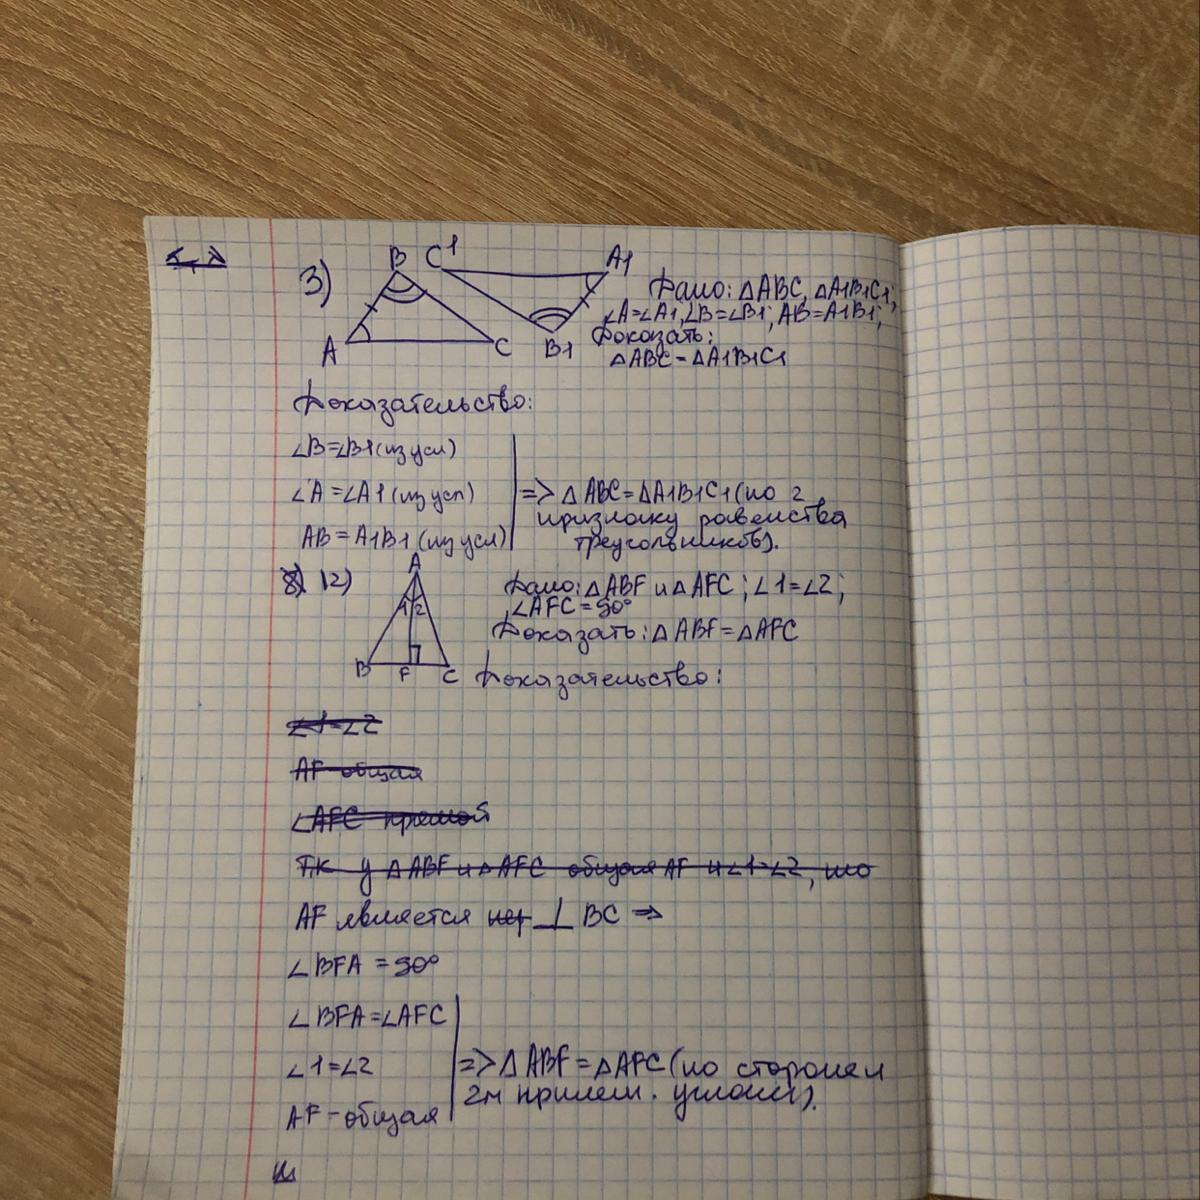 3)
B C1 A1
A C B1
Дано: △ABC, △A1B1C1;
∠A=∠A1, ∠B=∠B1; AB=A1B1;
Доказать:
△ABC=△A1B1C1
Доказательство:
∠B=∠B1 (из усл)
∠A=∠A1 (из усл)
AB=A1B1 (из усл)
=> △ABC=△A1B1C1 (по 2
признаку равенства
треугольников).
12)
A
1 2
B F C
Дано: △ABF и △AFC; ∠1=∠2;
∠AFC=90°
Доказать: △ABF=△AFC
Доказательство:
∠1=∠2
AF общая
∠AFC прямой
Тк у △ABF и △AFC общая AF и ∠1=∠2, то
AF является пер ⊥ BC =>
∠BFA = 90°
∠BFA=∠AFC
∠1=∠2
AF-общая
=> △ABF=△AFC (по сторонем
2м прилеж. углам).